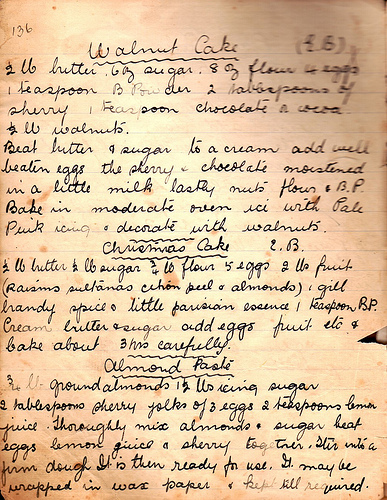 136
Walnut Cake (E.B)
½ lb butter. 6 oz sugar. 8 oz flour 4 eggs
1 teaspoon B Powder 2 tablespoons of
sherry 1 teaspoon chocolate or cocoa.
½ lb walnuts.
Beat butter & sugar to a cream add well
beaten eggs the sherry & chocolate moistened
in a little milk lastly nuts flour & B.P.
Bake in moderate oven ici with Pale
Pink icing & decorate with walnuts.
Chrismas Cake E.B.
½ lb butter ½ lb sugar ¾ lb flour 5 eggs 2 lbs fruit
(raisins sultanas citron peel & almonds) 1 gill
brandy spice & little parisian essence 1 teaspoon B.P.
Cream butter & sugar add eggs fruit etc &
bake about 3 hrs carefully.
Almond Paste
¾ lb ground almonds 1½ lbs icing sugar
2 tablespoons sherry yolks of 3 eggs 2 teaspoons lemon
juice. Thoroughly mix almonds & sugar beat
eggs lemon juice & sherry together. Stir into a
firm dough It is then ready for use. It may be
wrapped in wax paper & kept till required.